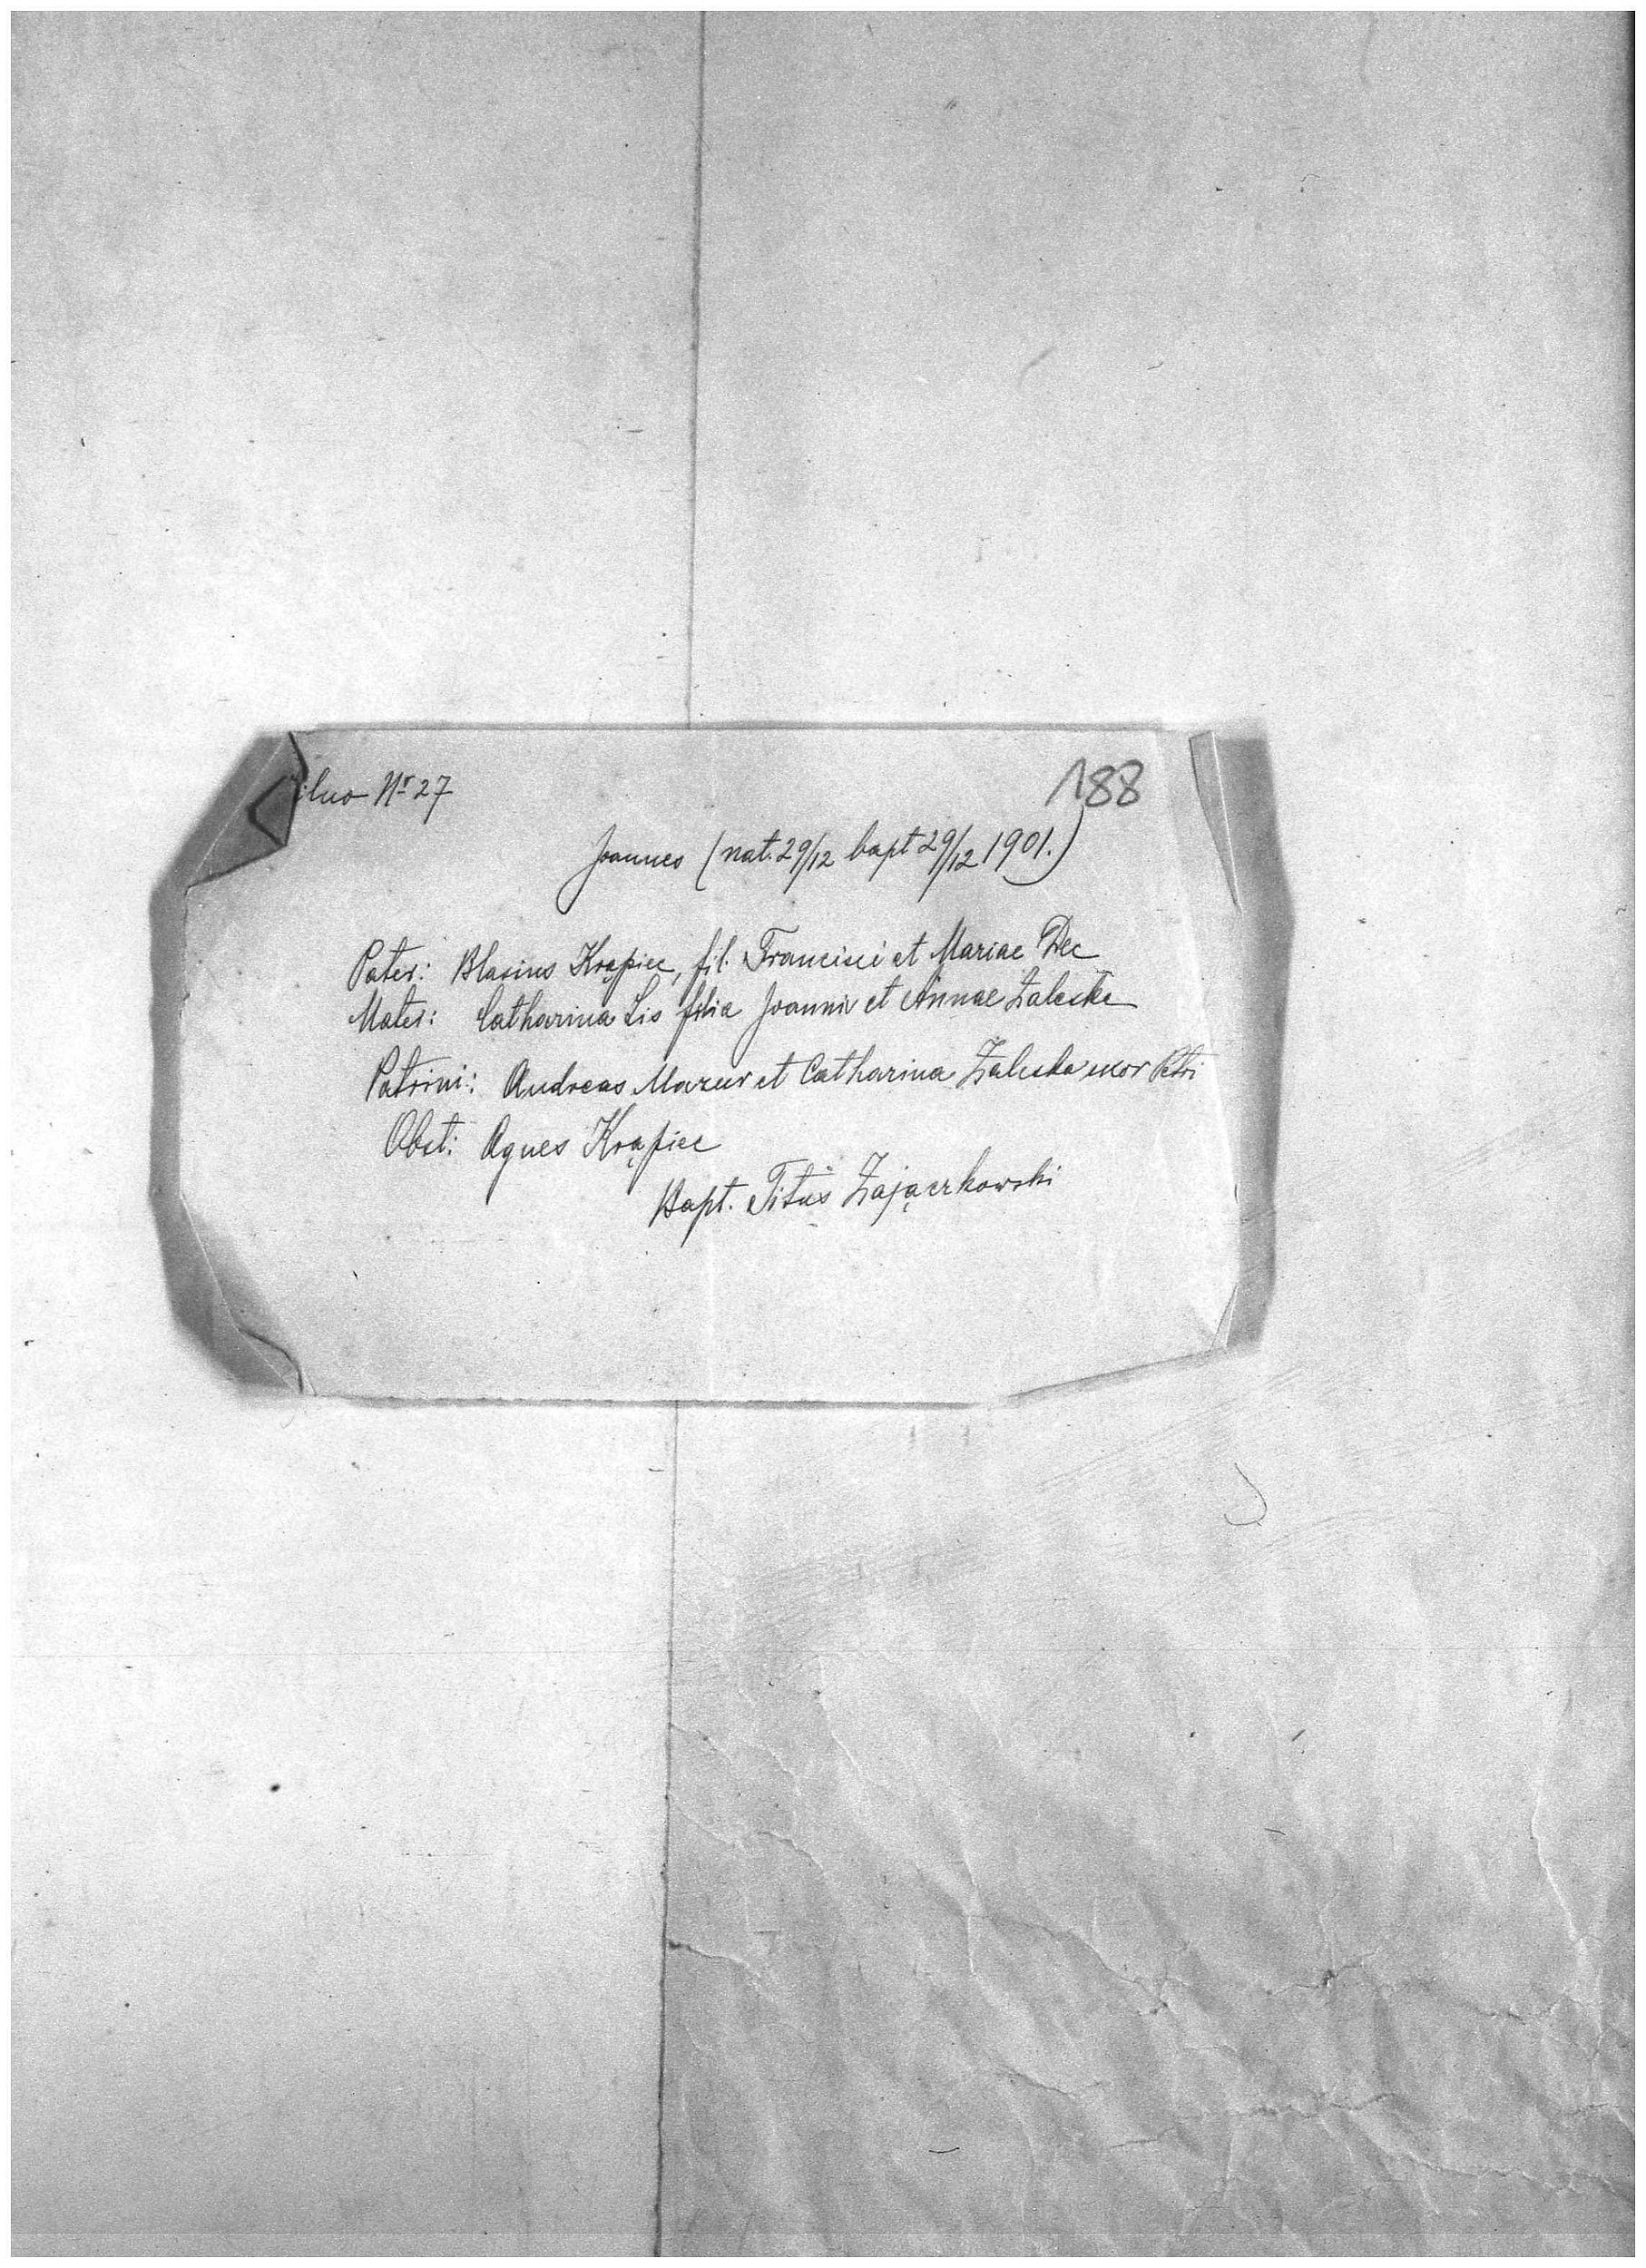 ilno Nr 27
188
Joannes (nat. 29/12 bapt 29/12 1901.)
Pater: Blasius Krąpiec, fil. Francisci et Mariae Dec
Mater: Catharina Lis filia Joannis et Annae Zaleska
Patrini: Andreas Mazur et Catharina Zaleska uxor Petri
Obst: Agnes Krąpiec
Bapt. Titus Zajączkowski